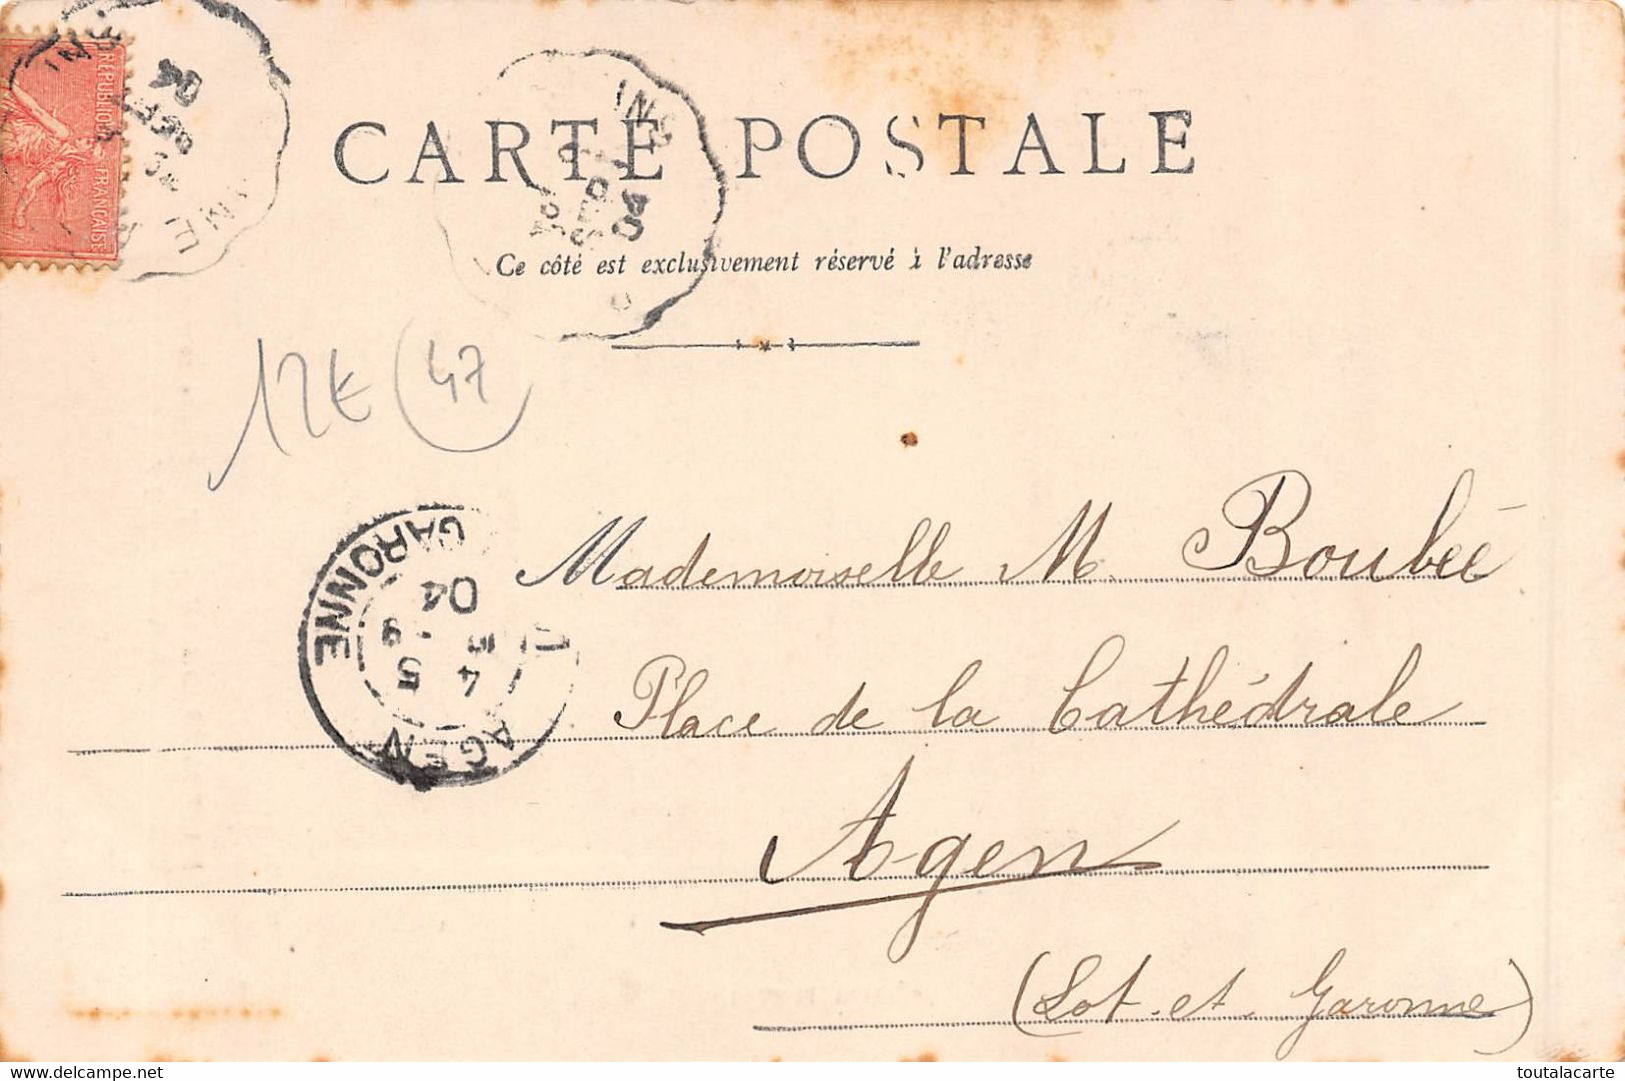 CARTE POSTALE
Ce côté est exclusivement réservé à l'adresse
RÉPUBLIQUE FRANÇAISE
04
04
12€ (47)
GARONNE
04
4 5
AGEN
Mademoiselle M. Boubée
Place de la Cathédrale
Agen
(Lot. et. Garonne)
www.delcampe.net
toutalacarte